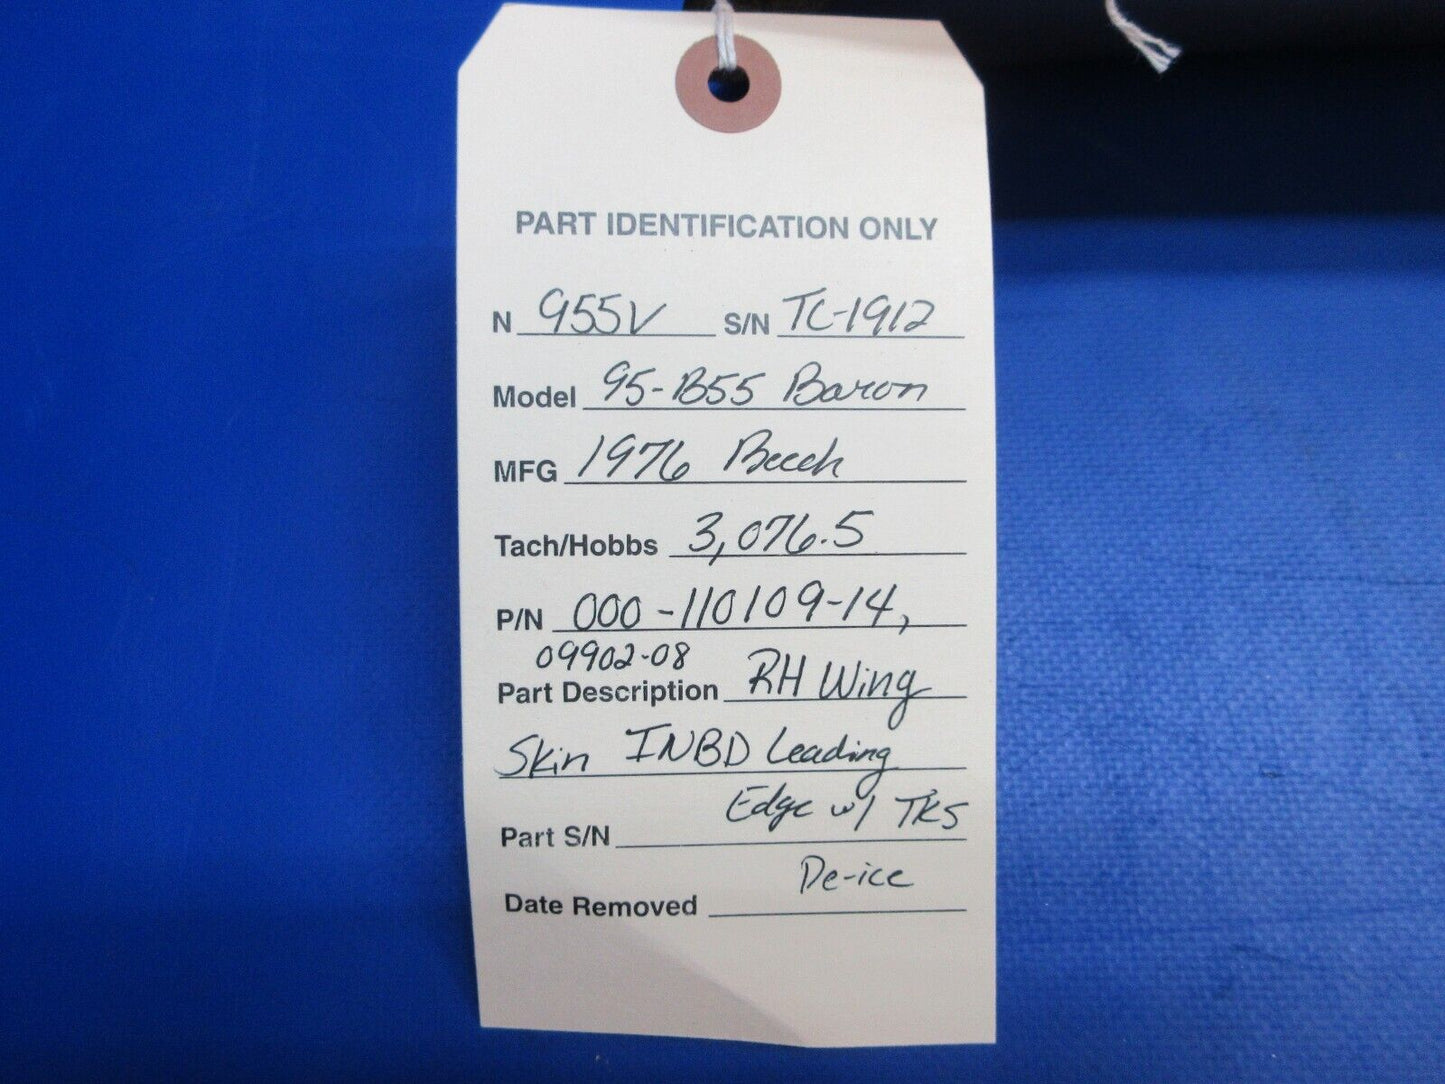 PART IDENTIFICATION ONLY
N 955V S/N TC-1912
Model 95-B55 Baron
MFG 1976 Beech
Tach/Hobbs 3,076.5
P/N 000-110109-14,
09902-08
Part Description RH Wing
Skin INBD Leading
Edge w/ TKS
Part S/N
De-ice
Date Removed